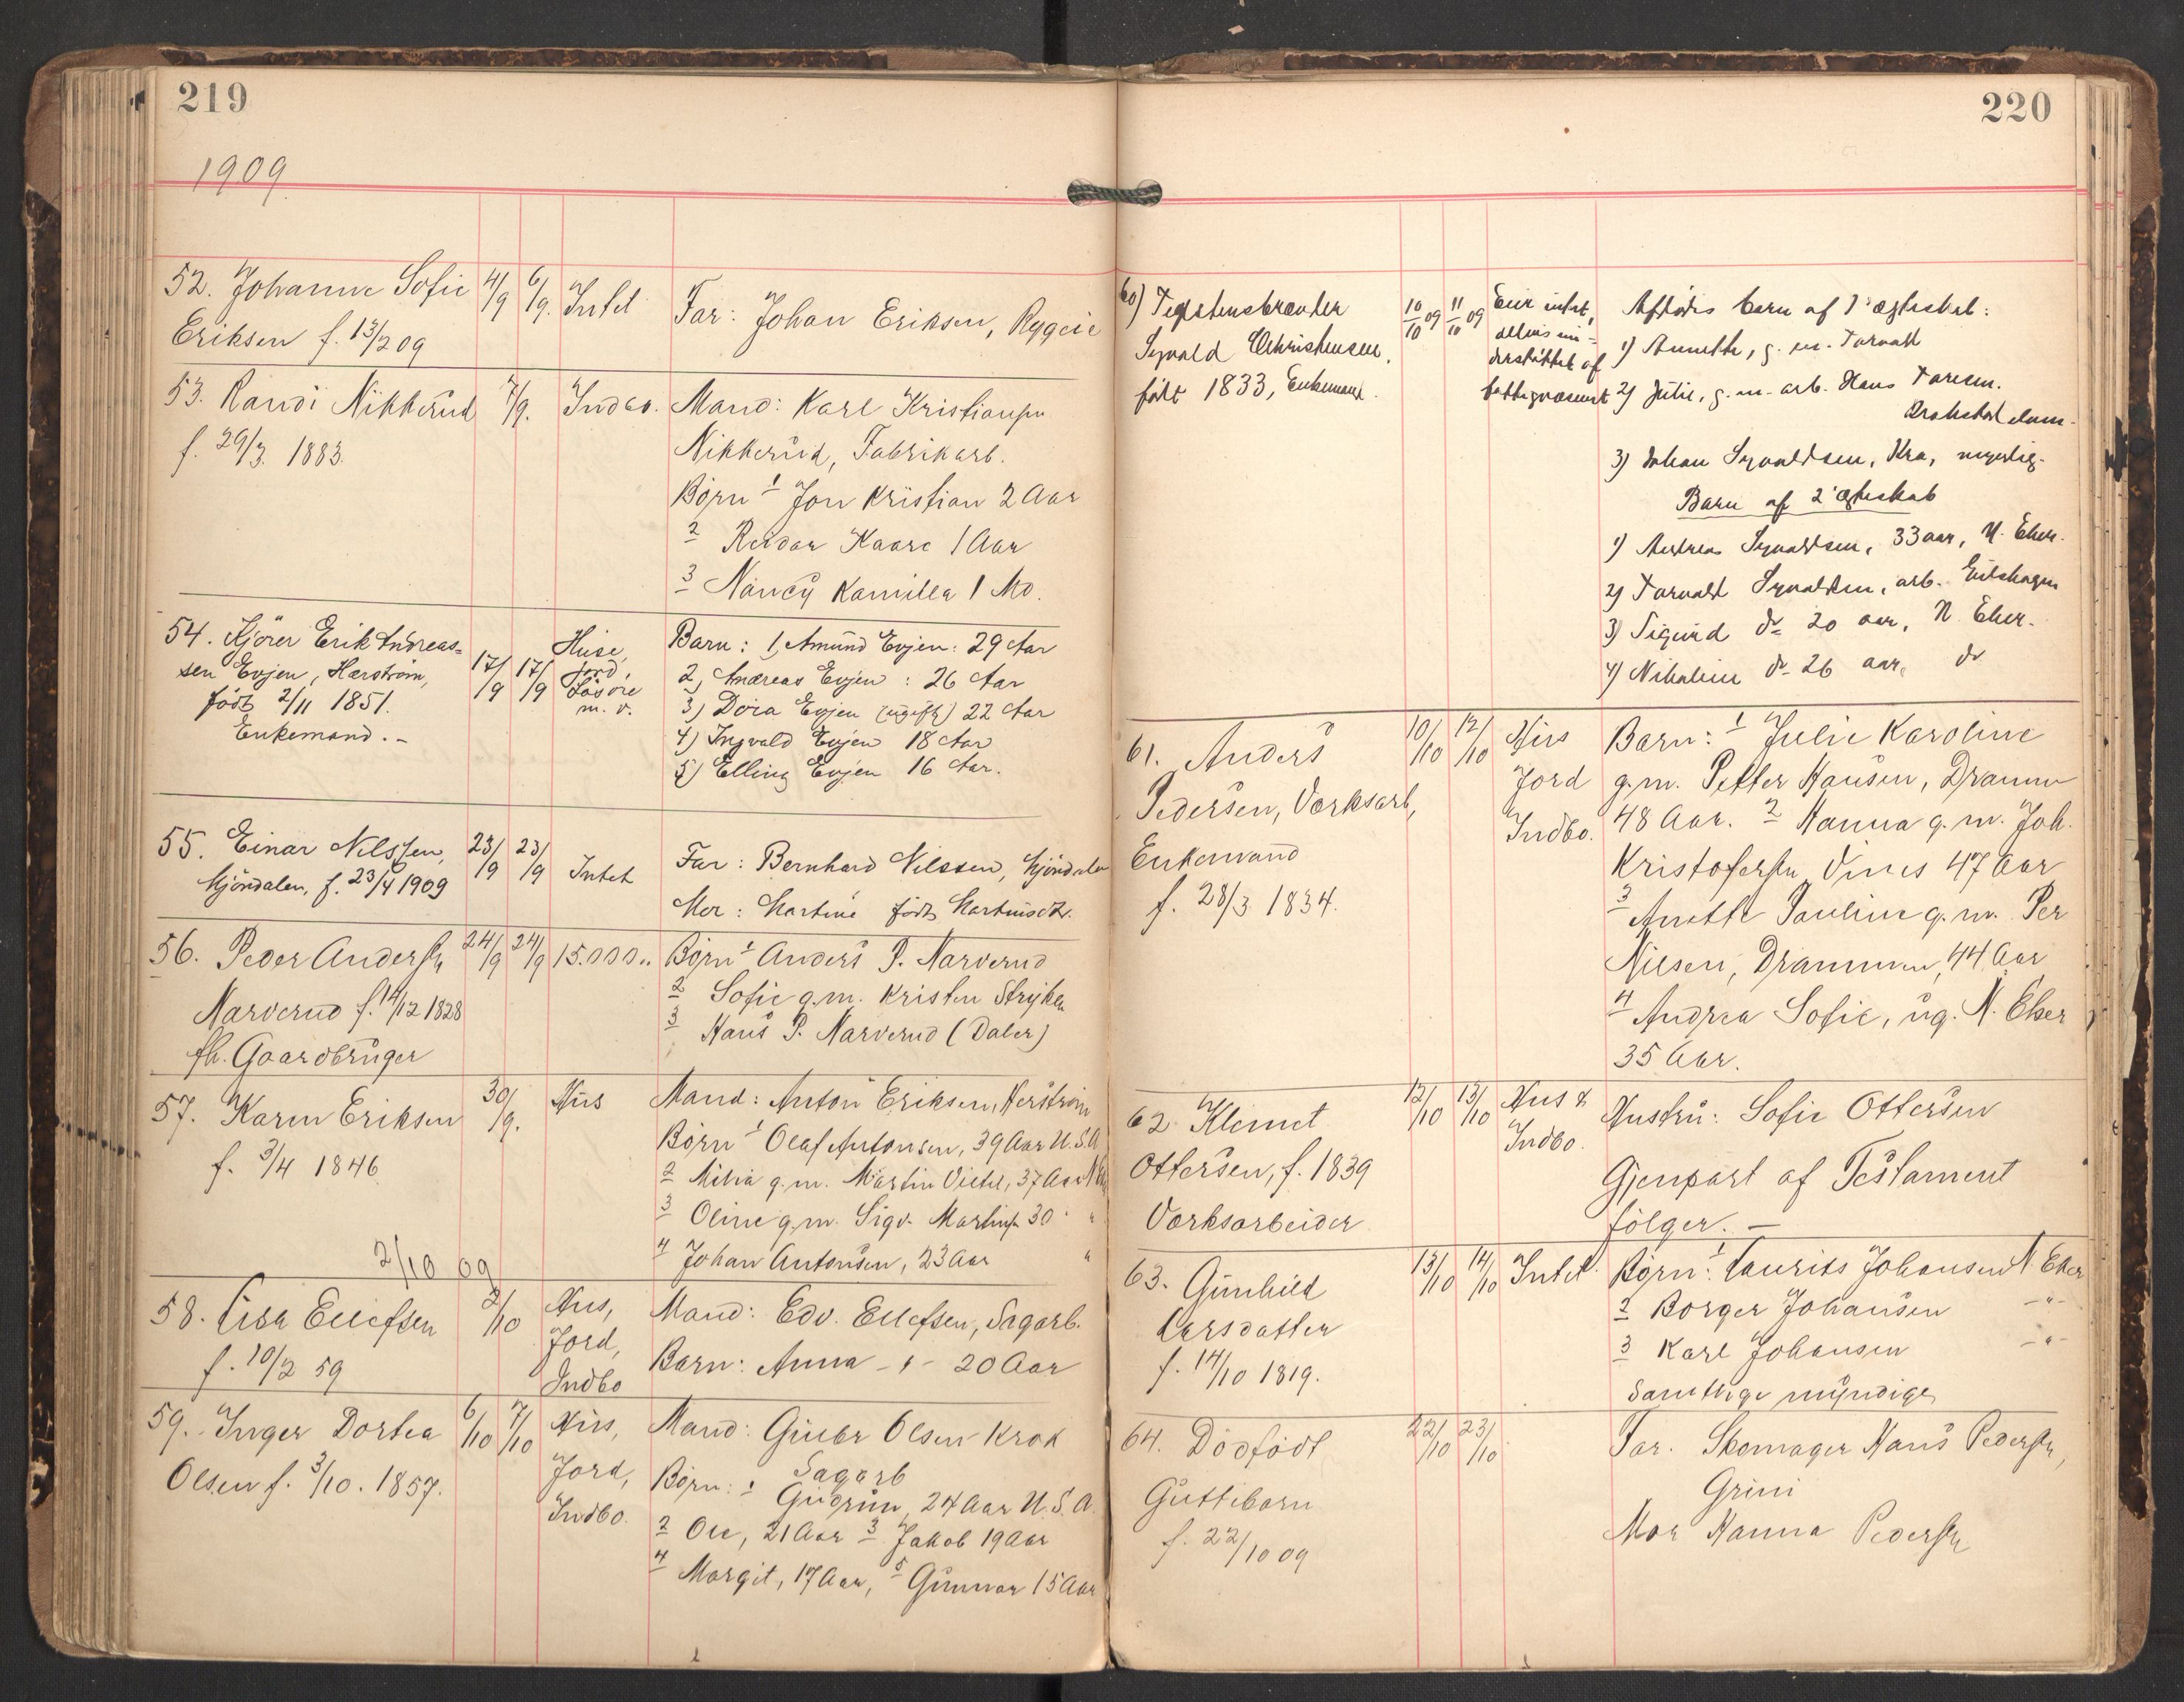 219
1909
52. Johanne Sofie 4/9 6/9. Intet Far: Johan Eriksen, Ryggeie
Eriksen f. 13/2 09
53. Randi Nikkerud 7/9. Indbo. Mand: Karl Kristiansen
f. 29/3. 1883. Nikkerud, Fabrikarb.
Børn 1 Jon Kristian 2 Aar
2 Reidar Kaare 1 Aar
3 Nancy Kamilla 1 Mo.
54. Kjörer Erik Andreas= 17/9 17/9 Huse, Barn: 1, Amund Evjen: 29 Aar
sen Evjen, Hærström, jord, 2, Andreas Evjen: 26 Aar
född 2/11 1851. Lösöre 3) Dóra Evjen (ugift) 22 Aar
Enkemand.- m. v. 4) Ingvald Evjen 18 Aar
5) Elling Evjen 16 Aar.
55. Einar Nilssen, 23/9 23/9 Intet Far: Bernhard Nilssen, Mjöndalen
Mjöndalen, f. 23/4 1909 Mor: Martine född Martinsdtr.
56. Peder Andersen 24/9 24/9 15.000,, Børn 1 Anders P. Narverud
Narverud f. 14/12 1828 2 Sofie g.m. Kristen Stryken
fh. Gaardbruger 3 Hans P. Narverud (Daler)
57. Karen Eriksen 30/9. Hus Mand: Anton Eriksen, Herström
f. 3/4 1846 Børn 1 Olaf Antonsen, 39 Aar U.S.A
2 Milia g.m. Martin 37 Aar
3 Oline g.m. Sigv. Martinsen 30 " "
4 Johan Antonsen, 23 Aar "
2/10 09
58. Lisa Ellefsen 2/10 Hus, Mand: Edv. Ellefsen, Sagarb.
f. 10/2 59 Jord, Barn: Anna -"- 20 Aar
Indbo
59. Inger Dortea 6/10 7/10 Hus, Mand: Gulbr Olsen Krok
Olsen f. 3/10. 1857. Jord, Sagarb
Indbo. Børn: 1 Gudrun, 24 Aar U.S.A.
2 Ole, 21 Aar 3 Jakob 19 Aar
4 Margit, 17 Aar, 5 Gunvor 15 Aar
220
60) Teglstensbrænder 10/10 09 11/10 09 Eier intet, Afdödes barn af 1' ægteskab:
Syvald Christensen, alene un- 1) Annette, g. m. Torvald
født 1833, Enkemand. derstöttet af
fattigvæsenet 2) Julie, g.m. arb. Hans Toresen.
3) Johan Syvaldsen, Kra, myndig.
Barn af 2' ægteskab
1) Andreas Syvaldsen, 33 aar, N. Eker.
2) Torvald Syvaldsen, arb.
3) Sigurd do 20 aar, N. Eker.
4) Nikoline do 26 aar. do
61. Anders 10/10 12/10 Hus Barn: 1 Julie Karoline
Pedersen, Værksarb, Jord g.m. Petter Hansen, Drammen
Enkemand Indbo. 48 Aar. 2 Hanna g.m. Joh.
f. 28/3 1834. Kristofersen Vines 47 Aar
3 Anette Pauline g.m. Per
Nilsen, Drammen, 44 Aar
4 Andrea Sofie, ug. N. Eker
35 Aar.
62 Klemet 12/10 13/10 Hus & Hustru: Sofie Ottersen
Ottersen, f. 1839 Indbo. Gjenpart af Testament
Værksarbeider følger. —
63. Gunhild 13/10 14/10 Intet. Børn: 1 Laurits Johansen N. Eker
Larsdatter 2 Borger Johansen -"-
f. 14/10 1819. 3 Karl Johansen -"-
samtlige myndige
64. Dödfödt 22/10 23/10 Far. Skomager Hans Pedersen,
Guttebarn Grini
f. 22/10 09 Mor Hanna Pedersen